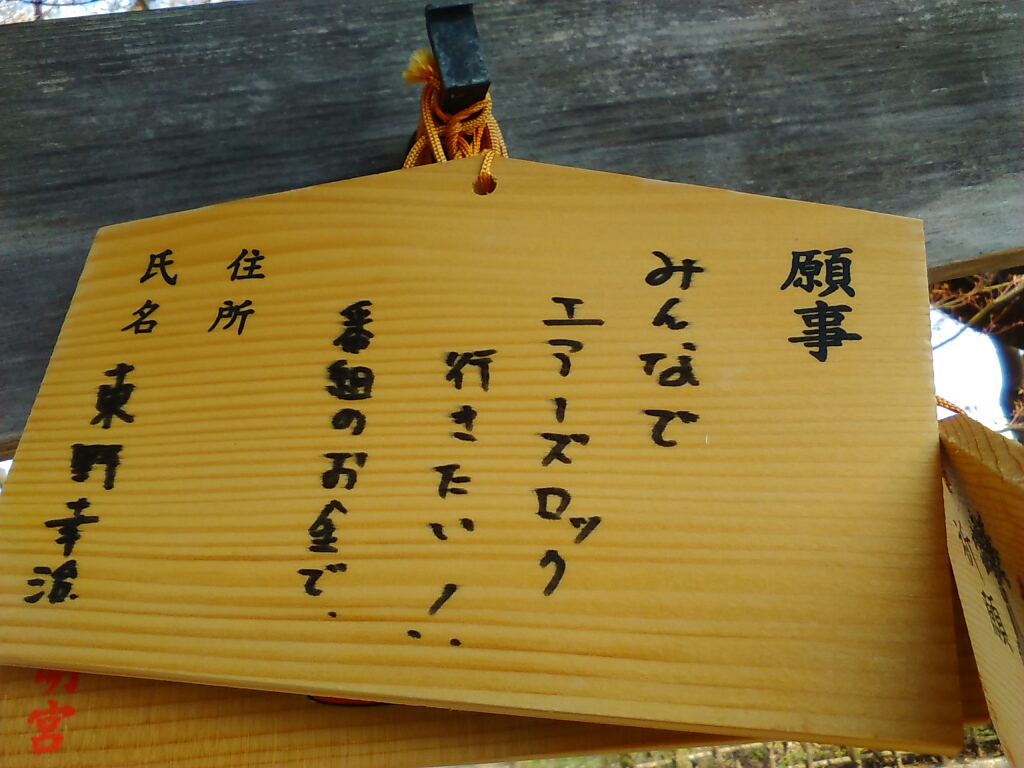 願事
みんなで
エアーズロック
行きたい!!
番組のお金で.
住所
氏名 東野幸治
宮
願